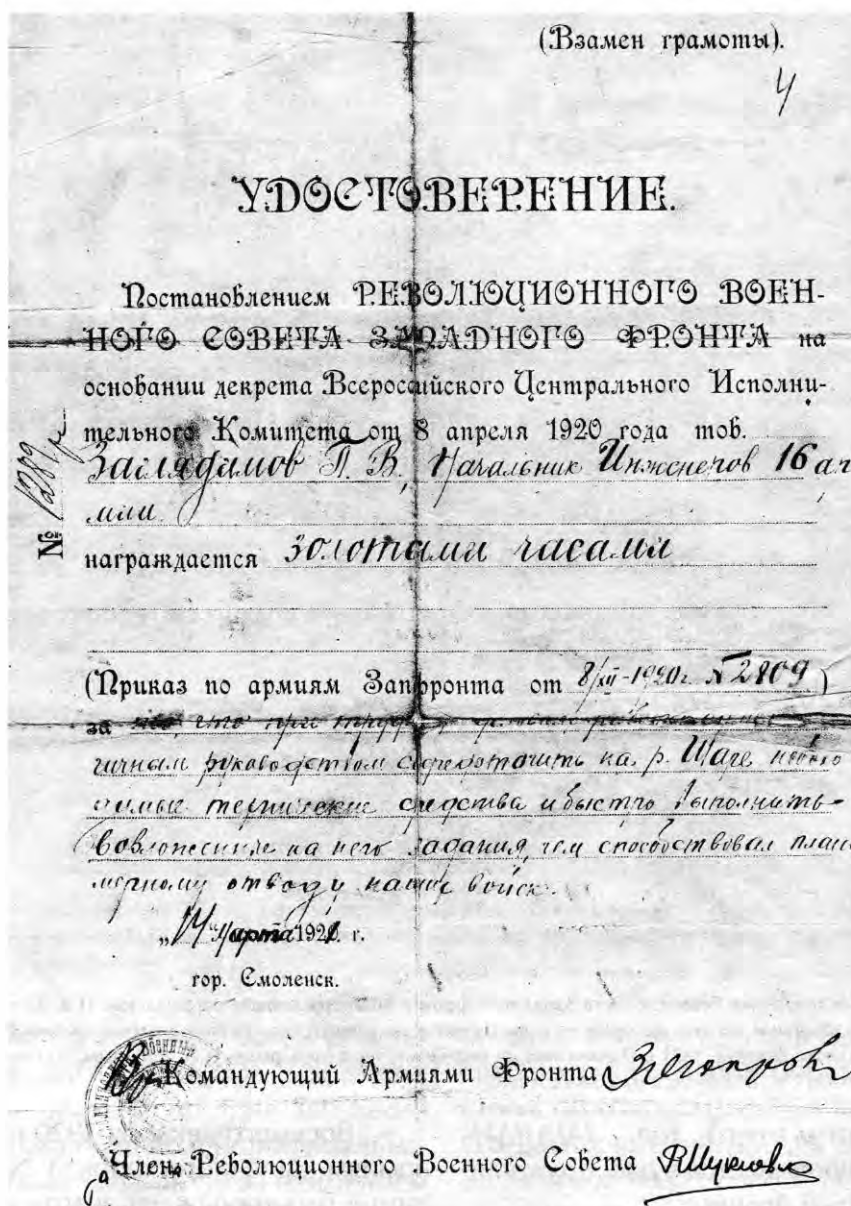 (Взамен грамоты).
4
УДОСТОВЕРЕНИЕ.
Постановлением РЕВОЛЮЦИОННОГО ВОЕН-
НОГО СОВЕТА ЗАПАДНОГО ФРОНТА на
основании декрета Всероссийского Центрального Исполни-
тельного Комитета от 8 апреля 1920 года тов.
П. В., Начальник Инженеров 16 ар
мии
№ 1289
награждается золотыми часами
(Приказ по армиям Запфронта от 8/XII-1920г. №2809)
за то, что при
личным руководством сосредоточить на р. Щаре необхо
димые технические средства и быстро выполнить
возложенные на него задания, чем способствовал плано
мерному отводу наших войск.
„14" марта 1921 г.
гор. Смоленск.
Командующий Армиями Фронта
Член Революционного Военного Совета